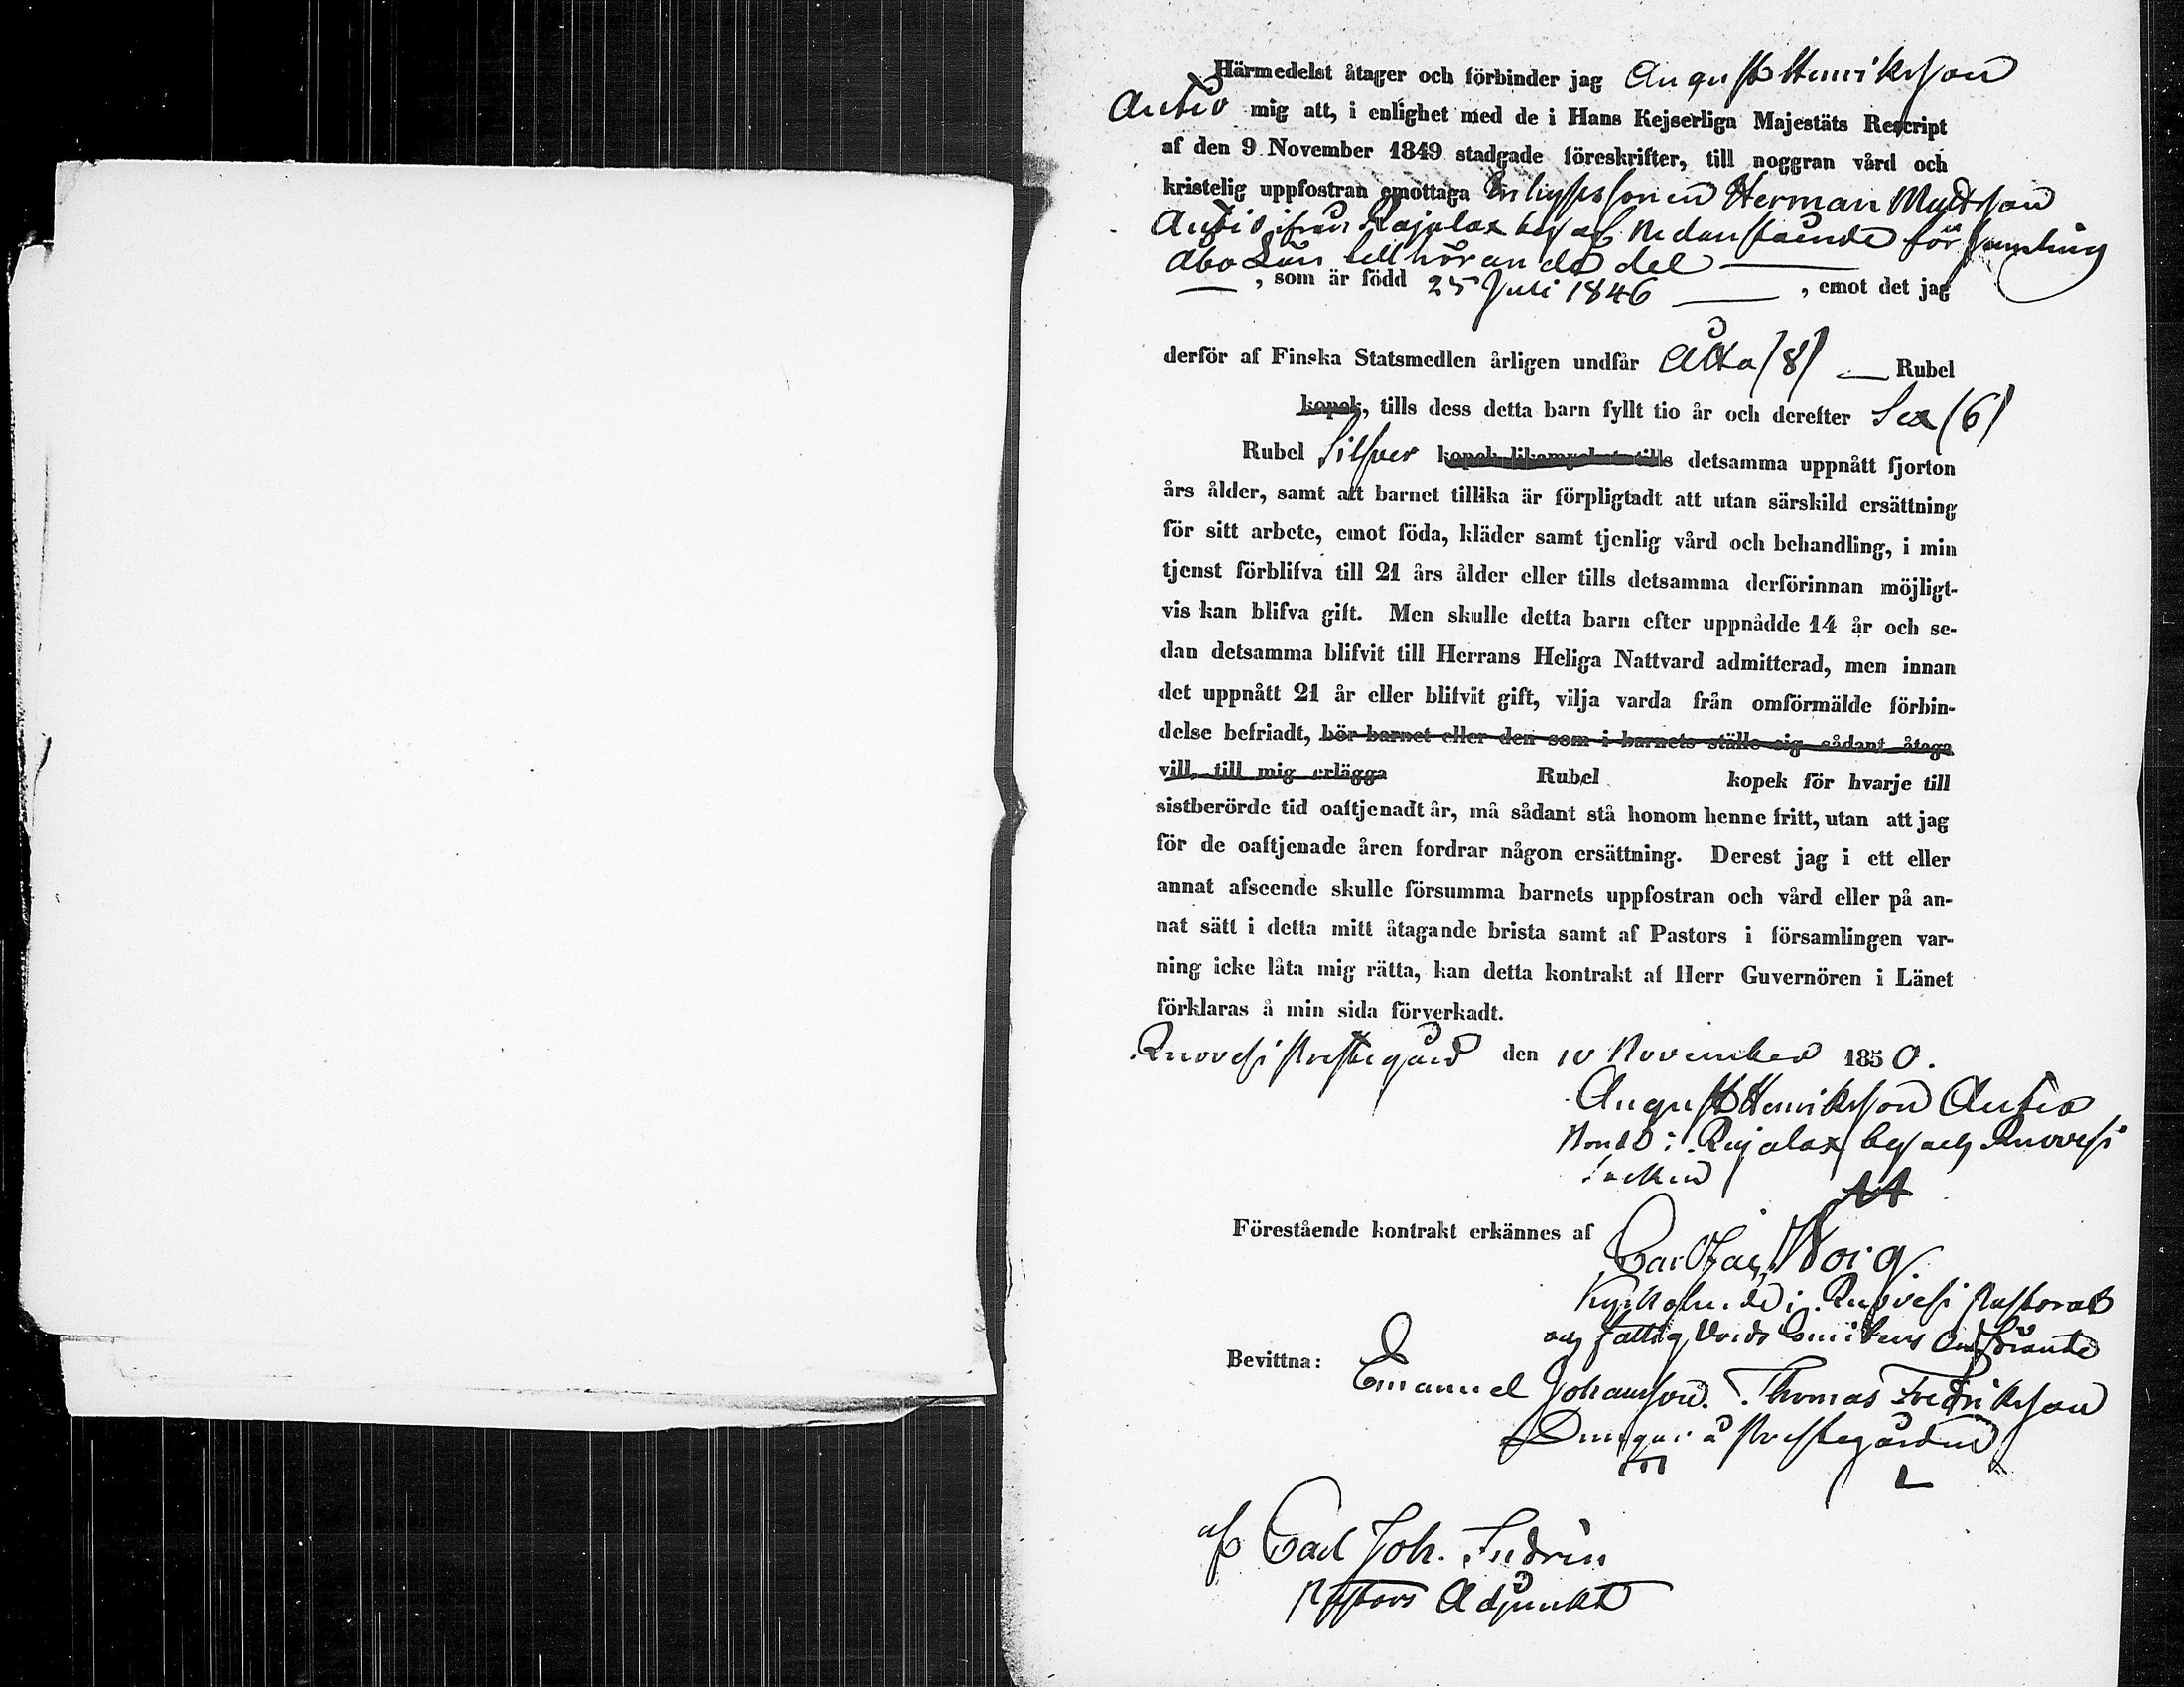 Härmedelst åtager och förbinder jag August Henriksson
Antio mig att, i enlighet med de i Hans Kejserliga Majestäts Rescript
af den 9 November 1849 stadgade föreskrifter, till noggran vård och
kristelig uppfostran emottaga Herman Mattsson
Antio ifrån Rajalax by af nedanstående församling
Åbo Län tillhörande del
, som är född 25 Juli 1846 , emot det jag
derför af Finska Statsmedlen årligen undfår Åtta (8) Rubel
kopek, tills dess detta barn fyllt tio år och derefter Sex (6)
Rubel Silfver kopek likamycket tills detsamma uppnått fjorton
års ålder, samt att barnet tillika är förpligtadt att utan särskild ersättning
för sitt arbete, emot föda, kläder samt tjenlig vård och behandling, i min
tjenst förblifva till 21 års ålder eller tills detsamma derförinnan möjligt-
vis kan blifva gift. Men skulle detta barn efter uppnådde 14 år och se-
dan detsamma blifvit till Herrans Heliga Nattvard admitterad, men innan
det uppnått 21 år eller blifvit gift, vilja varda från omförmälde förbin-
delse befriadt, bör barnet eller den som i barnets ställe sig sådant åtaga
vill, till mig erlägga Rubel kopek för hvarje till
sistberörde tid oaftjenadt år, må sådant stå honom henne fritt, utan att jag
för de oaftjenade åren fordrar någon ersättning. Derest jag i ett eller
annat afseende skulle försumma barnets uppfostran och vård eller på an-
nat sätt i detta mitt åtagande brista samt af Pastors i församlingen var-
ning icke låta mig rätta, kan detta kontrakt af Herr Guvernören i Länet
förklaras å min sida förverkadt.
Ruovesi Prestegård den 10 November 1850.
August Henriksson Antio
Bonde i Rajalax by och Ruovesi
Socken
Förestående kontrakt erkännes af
Kyrkoherde i Ruovesi Pastorat
och fattig Vårds Comitens Ordförande
Bevittna: Emanuel Johansson. Thomas Fredriksson
Drengar å Prestegården
af Carl Joh.
Pastors Adjunkt